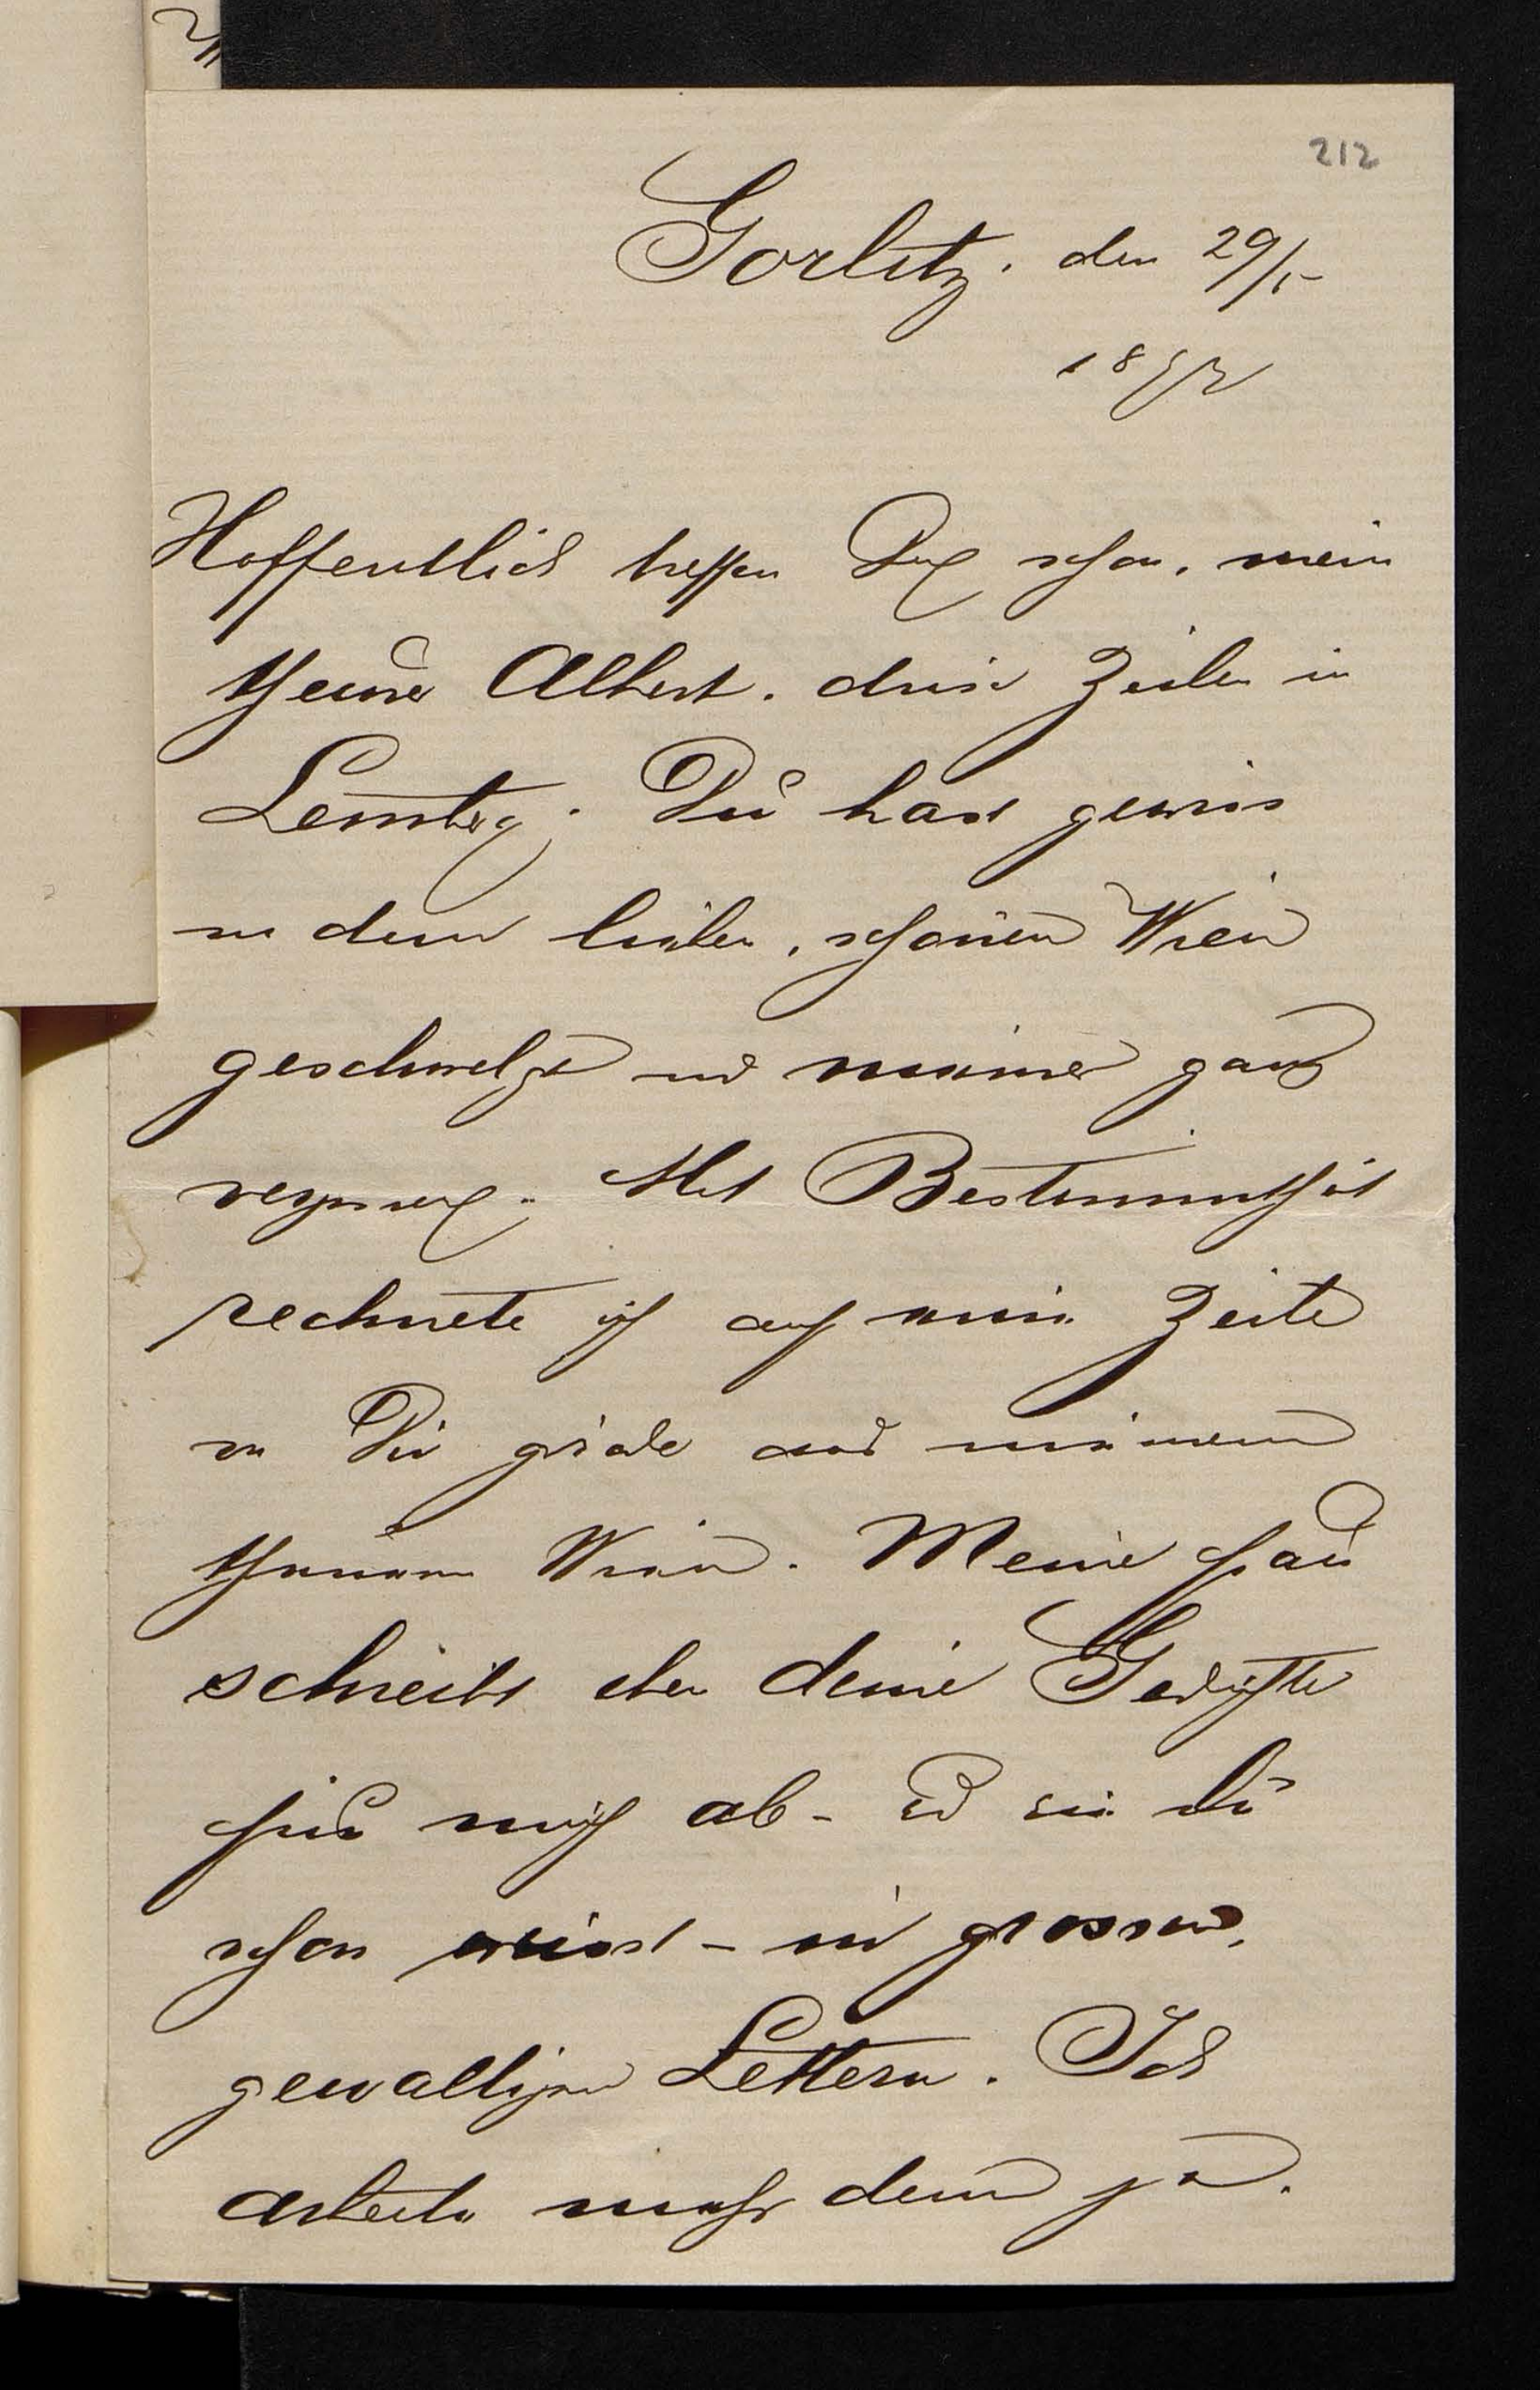 212
Görlitz. den 29/5
1872
Hoffentlich treffen Dich schon, mein
theurer Albert. diese Zeilen in
Lemberg. Du hast gewiss
in dem lieben, schönen Wien
geschwelgt und meiner ganz
vergessen. Mit Bestimmtheit
rechnete ich auf eine Zeile
von Dir grade aus meinem
theuren Wien. Meine Frau
schreibt eben deine Gedichte
für mich ab - wie Du
schon weisst - in grossen,
gewaltigen Lettern. Ich
arbeite mehr denn je.